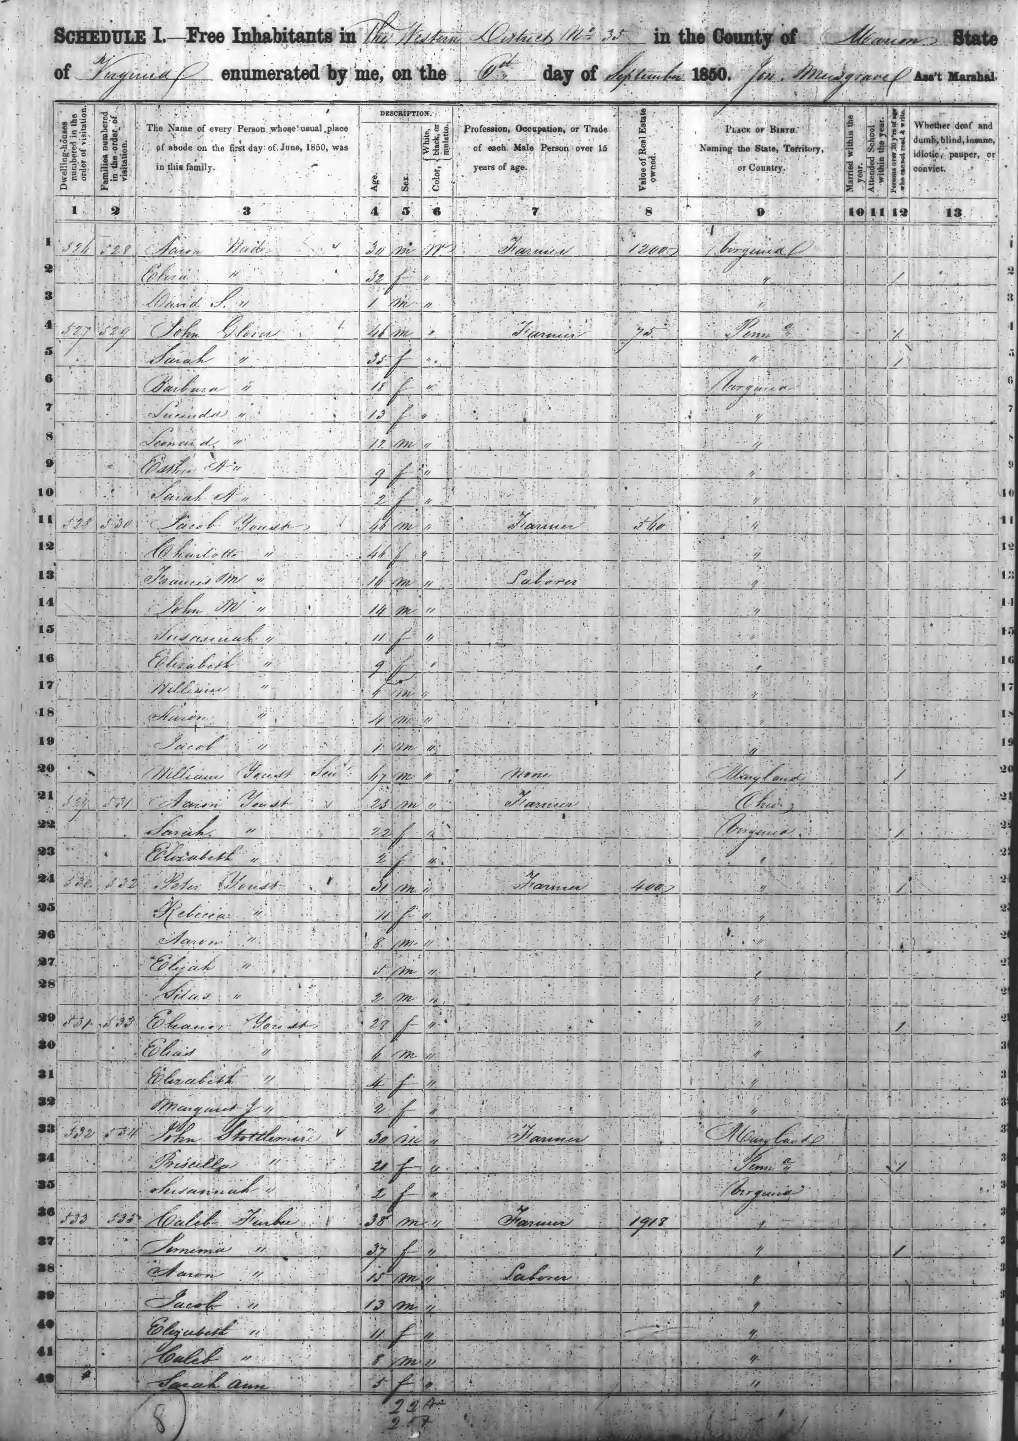 SCHEDULE I.—Free Inhabitants in The Western District No 35 in the County of Marion State
of Virginia enumerated by me, on the 6th day of September 1850. Jon. Musgrave Ass't Marshal.
Dwelling-houses numbered in the order of visitation.
Families numbered in the order of visitation.
The Name of every Person whose usual place of abode on the first day of June, 1850, was in this family.
DESCRIPTION.
Age.
Sex.
Color, White, black, or mulatto.
Profession, Occupation, or Trade of each Male Person over 15 years of age.
Value of Real Estate owned.
PLACE OF BIRTH. Naming the State, Territory, or Country.
Married within the year.
Attended School within the year.
Persons over 20 y'rs of age who cannot read & write.
Whether deaf and dumb, blind, insane, idiotic, pauper, or convict.
1 2 3 4 5 6 7 8 9 10 11 12 13
1 526 528 Aaron Wade 30 m W Farmer 1200 Virginia
2 " 32 f " " 1
3 David S. " 1 m " "
4 527 529 John Glover 46 m " Farmer 75 Penna 1
5 Sarah " 35 f " " 1
6 Barbara " 18 f " Virginia
7 Lucinda " 13 f " "
8 Leonard " 12 m " "
9 Esther A " 9 f " "
10 Sarah A " 2 f " "
11 528 530 Jacob Youst 46 m " Farmer 560 "
12 Charlotte " 46 f " "
13 Frances M " 16 m " Laborer "
14 John M " 14 m " "
15 Susannah " 11 f " "
16 Elizabeth " 9 f " "
17 William " 6 m " "
18 Aaron " 4 m " "
19 Jacob " 1 m " "
20 William Youst Sen 67 m " None Maryland 1
21 529 531 Aaron Youst 25 m " Farmer Ohio
22 Sarah " 22 f " Virginia 1
23 Elizabeth " 2 f " "
24 530 532 Peter Youst 31 m " Farmer 400 " 1
25 Rebecca " 11 f " "
26 Aaron " 8 m " "
27 Elijah " 5 m " "
28 Silas " 2 m " "
29 531 533 Eleanor Youst 28 f " " 1
30 Elias " 6 m " "
31 Elizabeth " 4 f " "
32 Margaret J " 2 f " "
33 532 534 John Stottlemire 30 m " Farmer Maryland
34 Priscilla " 21 f " Penna 1
35 Susannah " 2 f " Virginia
36 533 535 Caleb Furbee 38 m " Farmer 1918 "
37 Jemima " 37 f " " 1
38 Aaron " 15 m " Laborer "
39 Jacob " 13 m " "
40 Elizabeth " 11 f " "
41 Caleb " 8 m " "
42 Sarah Ann 5 f " "
8)
22